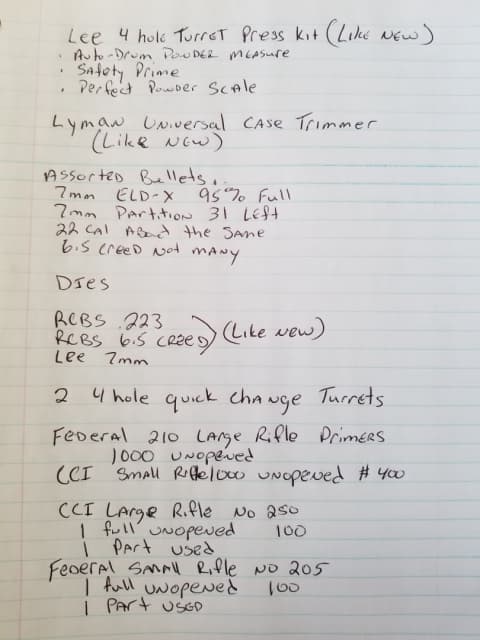 Lee 4 hole Turret Press Kit (Like New)
• Auto-Drum Powder measure
• Safety Prime
• Perfect Powder Scale
Lyman Universal Case Trimmer
(Like New)
Assorted Bullets..
7mm ELD-X 95% Full
7mm Partition 31 Left
22 cal About the Same
6.5 Creed Not Many
Dies
RCBS .223
RCBS 6.5 Creed (Like New)
Lee 7mm
2 4 hole quick change Turrets
Federal 210 Large Rifle Primers
1000 unopened
CCI Small Rifle 1000 unopened #400
CCI Large Rifle No 250
1 full unopened 100
1 Part used
Federal Small Rifle No 205
1 full unopened 100
1 Part used